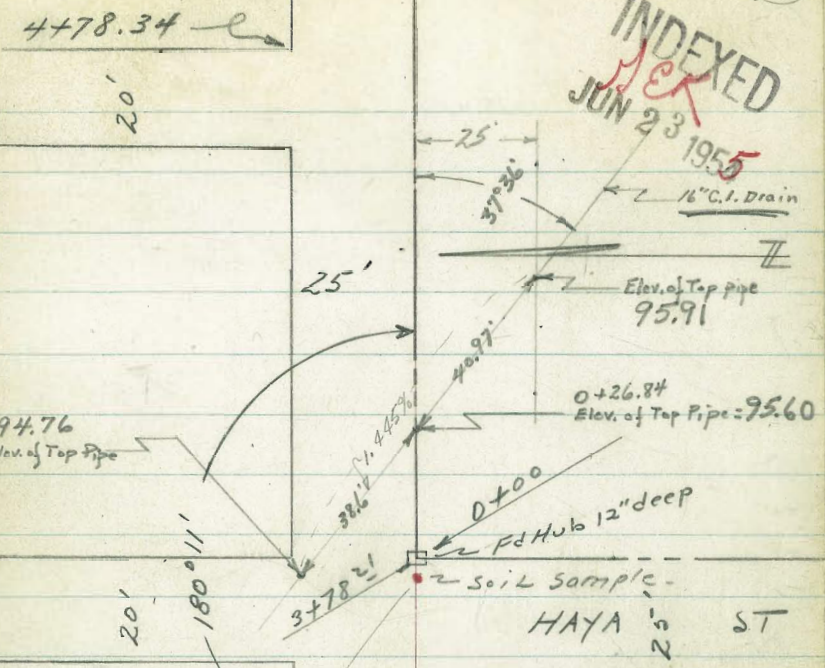 4+78.34
INDEXED
JEK
JUN 23 1955
20'
25'
37°36'
16" C.I. Drain
25'
Elev. of Top pipe
95.91
40.97'
0+26.84
Elev. of Top Pipe = 95.60
94.76
lev. of Top Pipe
1.445%
38.6'
0+00
Fd Hub 12" deep
3+78 21
soil sample
180°11'
20'
HAYA ST
25'